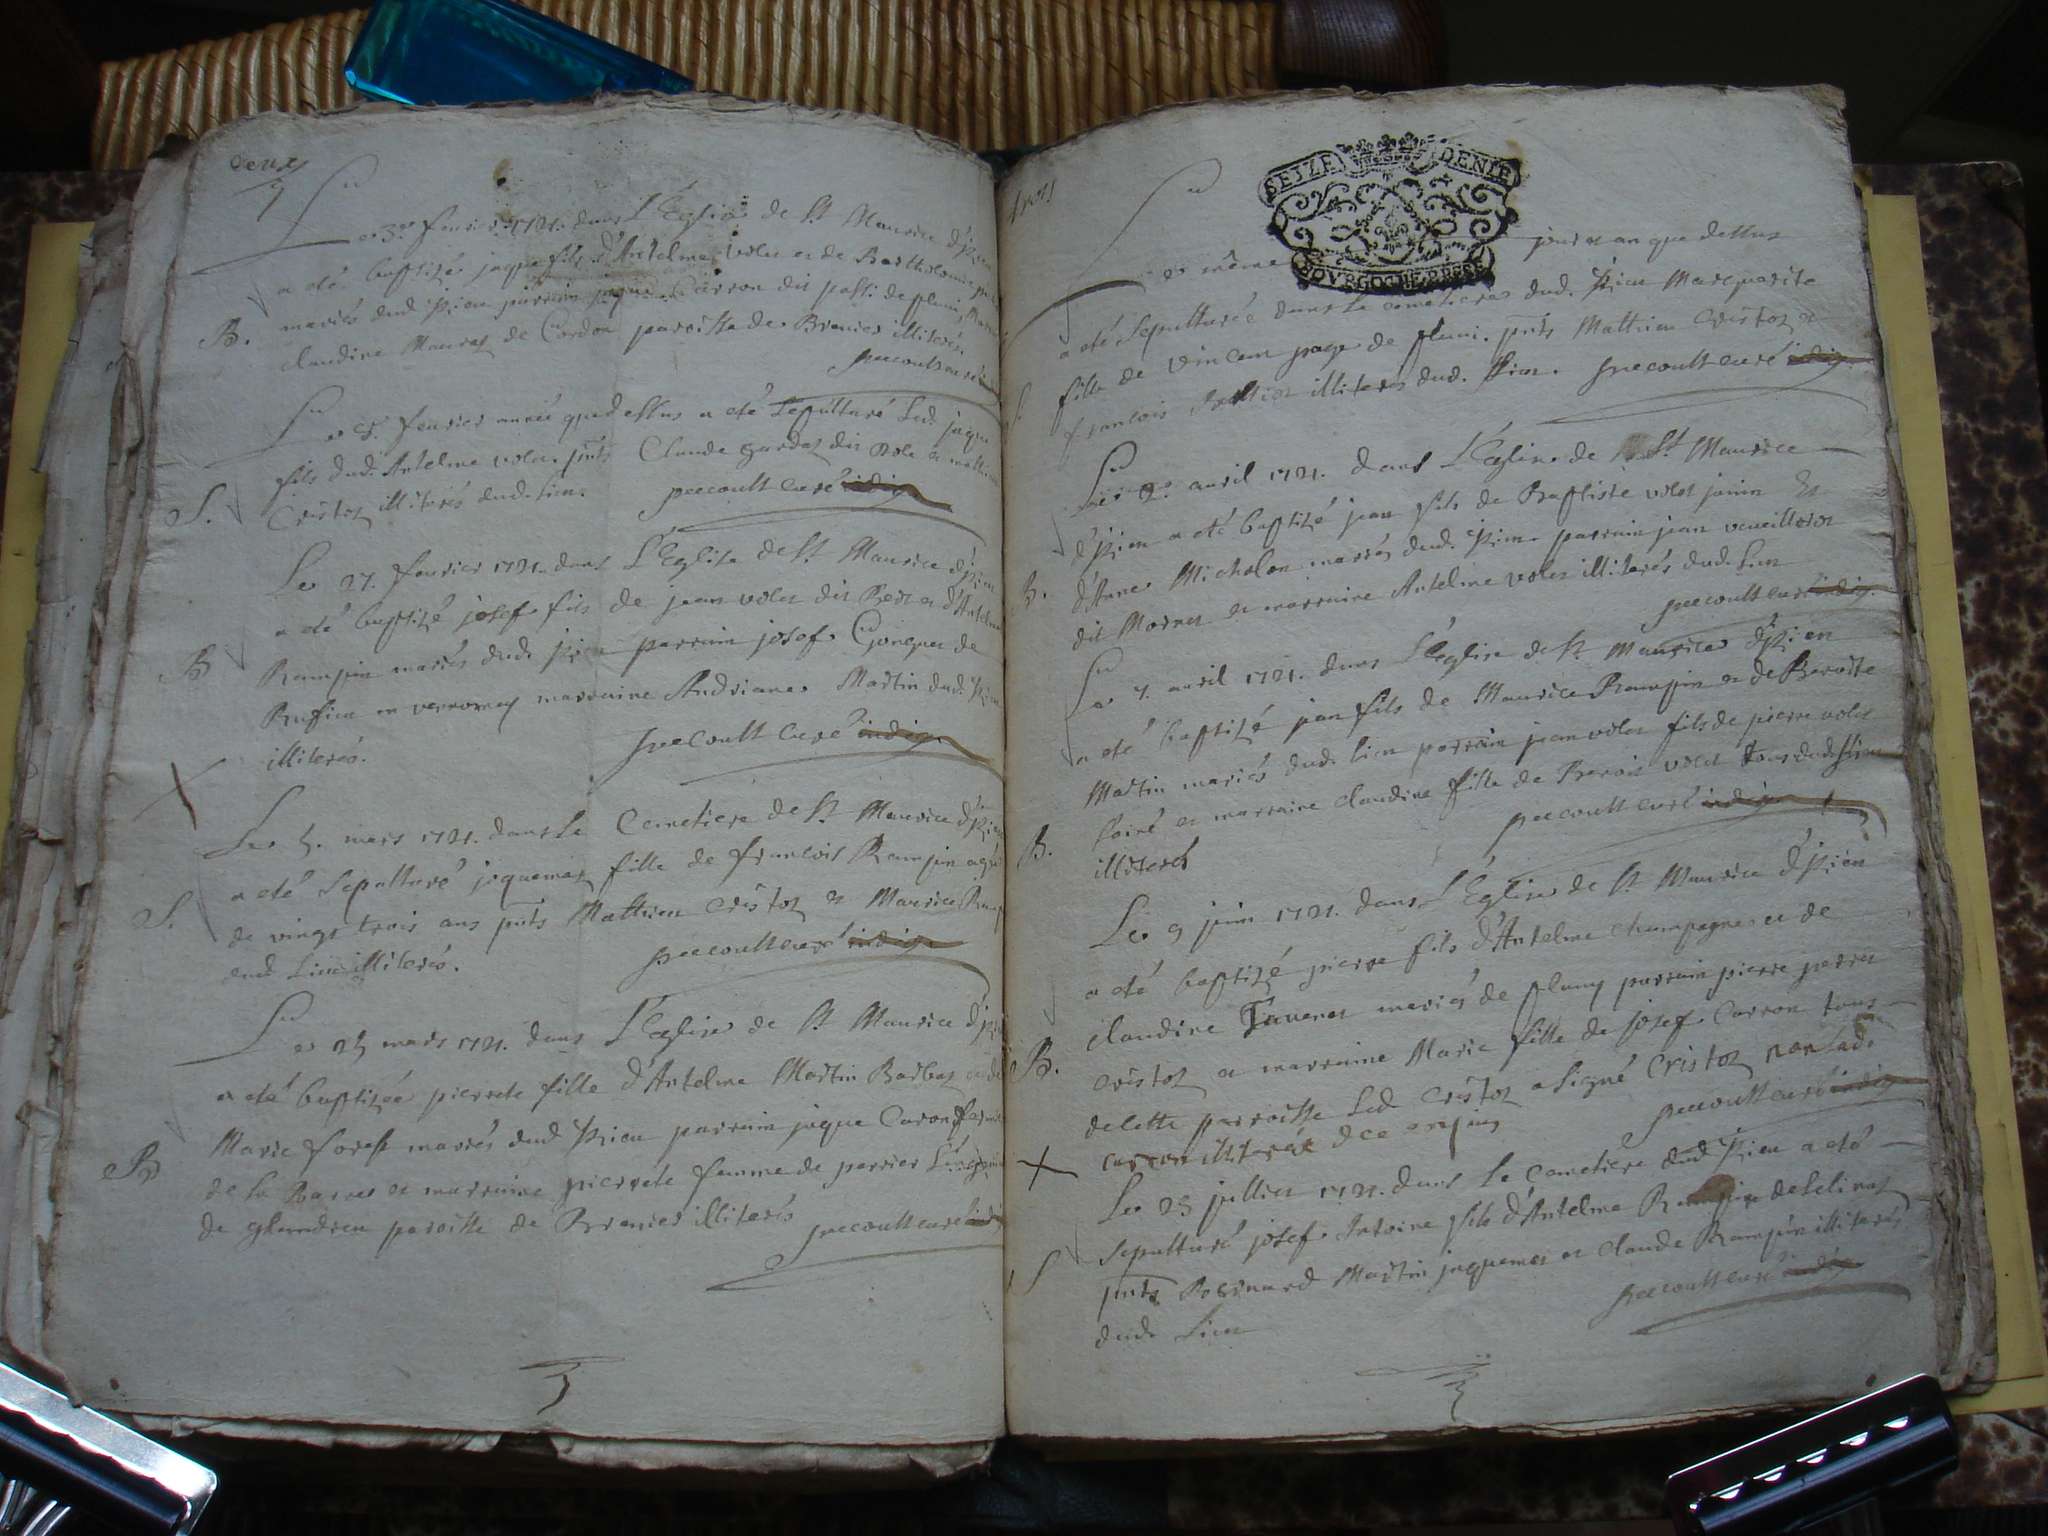 deux
Le 3e. feurier. 1721. dans L'Eglise de St Maurice d'Izieu
a eté baptizé jaque fils d'Antelme volet et de Bartholomie
B. mariés dud. Izieu parrain jaque Carron dit passi. de pluni,
claudine Mauraz de Cordon parroisse de Brenier illiterés.
precoult curé
Le 5. feurier année que dessus a eté Sepulturé Led. jaque
fils dud. Antelme volet. pnts Claude gardaz dit Dole et mathieu
S. Cristoz illiterés dud. Lieu. precoult curé indig
Le 27. feurier 1721. dans L'Eglise de St Maurice d'Izieu
a eté baptizé josef fils de jean volet dit Bent et d'Antelme
B Rampin mariés dud. Izieu parrain josef Gonguet de
Ruffieu en verromey marraine Andriane Martin dud. Izieu
illiterés. precoult Curé indig
Le 5. mars 1721. dans Le Cemetiere de St Maurice d'Izieu
a eté Sepulturé jiquemaz fille de francois Rampin agée
S. de vingt trois ans pnts Mathieu Cristoz et Maurice Ramp
dud Lieu illiterés. precoult curé indig
Le 25 mars 1721. dans L'Eglise de St Maurice d'Izi
a eté baptizée pierrete fille d'Antelme Martin Barbaz et de
B Marie forest mariés dud Izieu parrain jaque Caron
de la Barre et marraine pierrete femme de perrier
de glandieu paroisse de Brenier illiterés precoult curé indig
trois
SEIZE DENIE
BOVRGOGNE BRESSE
Le même jour et an que dessus
a eté Sepulturée dans Le cemetiere dud. Izieu Marguerite
S. fille de vincent page de pluni. pnts Mathieu Cristoz et
francois illiterés dud. Lieu. precoult curé indig.
Le 2e. auril 1721. dans L'Eglise de St Maurice
d'Izieu a eté baptizé jean fils de Baptiste volet janin Et
B. d'Anne Micholon mariés dud. Izieu parrain jean
dit Mornet et marraine Antelme volet illiterés dud. Lieu
precoult curé indig.
Le 7. auril 1721. dans L'Eglise de St Maurice d'Izieu
a eté baptizé jean fils de Maurice Rampin et de Benoite
Martin mariés dud. lieu parrain jean volet fils de pierre volet
B. et marraine claudine fille de Benoit volet tous dud. Lieu
illiterés precoult curé indig
Le 9 juin 1721. dans L'Eglise de St Maurice d'Izieu
a eté baptizé pierre fils d'Antelme champagne et de
claudine Tavenet mariés de pluny parrain pierre perret
B. cristoz et marraine Marie fille de josef Carron tous
de cette parroisse Led Cristoz a signé Cristoz non lad.
carron illiterée de ce enquis precoult curé indig
Le 23 jullier 1721. dans Le Cemetiere dud Izieu a eté
Sepulturé josef Antoine fils d'Antelme Rampin de
S pnts Bernard Martin jaquemet et claude Rampin illiterés
dud. Lieu precoult curé indig